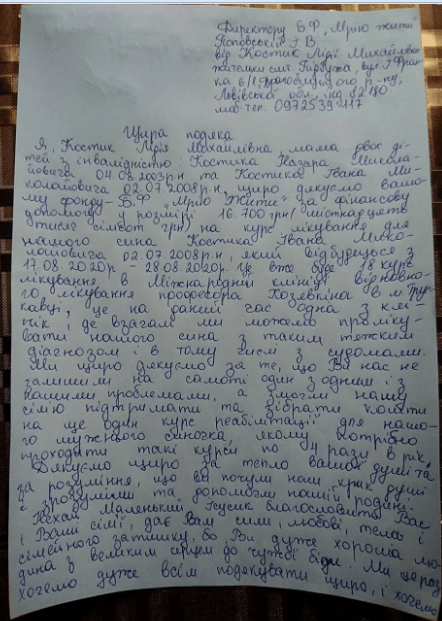 Директору Б.Ф. „Мрію жити"
Поповській І. В.
від Костик Лідії Михайлівни
жительки смт. Підбужа, вул. І. Фран-
ка 6/1, Дрогобицького р-ну,
Львівської обл., інд. 82180
моб. тел. 0972539117
Щира подяка
Я, Костик Лідія Михайлівна, мама двох ді-
тей з інвалідністю Костика Назара Микола-
йовича 04.08.2003р.н та Костика Івана Ми-
колайовича 02.07.2008р.н, щиро дякуємо вашо-
му фонду Б.Ф „Мрію Жити" за фінансову
допомогу у розмірі 16.700 грн (шістнадцять
тисяч сімсот грн) на курс лікування для
нашого сина Костика Івана Мико-
лайовича 02.07.2008р.н, який відбудеться з
17.08.2020р – 28.08.2020р. Це вже буде 18 курс
лікування в Міжнародній клініці відновно-
го лікування професора Козявкіна в м. Тру-
скавці, це на даний час одна з клі-
нік, де взагалі ми можемо проліку-
вати нашого сина з таким тяжким
діагнозом і в тому числі з судомами.
Ми щиро дякуємо за те, що Ви нас не
залишили на самоті один з одним і з
нашими проблемами, а змогли нашу
сімю підтримати та зібрати кошти
на ще один курс реабілітації для нашо-
го мужнього синочка, якому потрібно
проходити такі курси по 4 рази в рік.
Дякуємо щиро за тепло вашої душі та
за розуміння, що ви почули наш „крик душі
і зрозуміли та допомогли нашій родині.
Нехай Маленький Ісусик благословить Вас
і Ваші сімї, дає Вам сили, любові, тепла і
сімейного затишку, бо Ви дуже хороша лю-
дина з великим серцем до чужої біди. Ми ще раз
хочемо дуже всім подякувати щиро, і хочемо